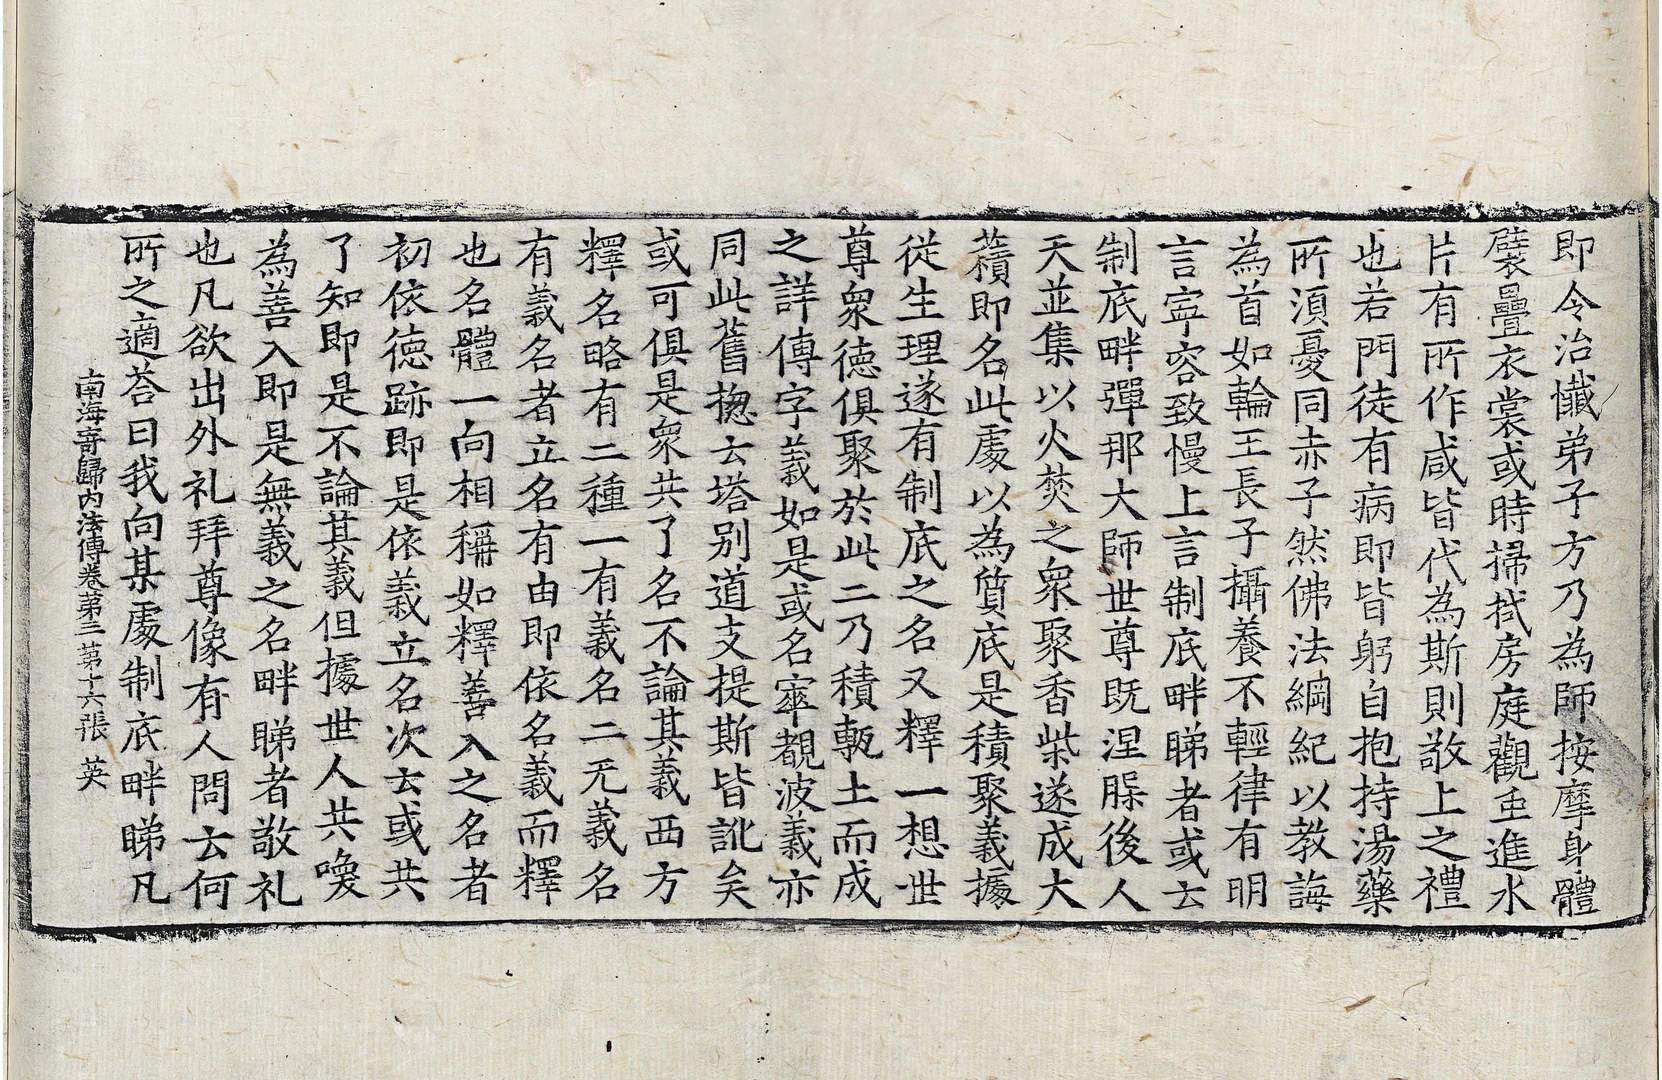 即令治懺弟子方乃為師按摩身體
襞疊衣裳或時掃拭房庭觀䖝進水
片有所作咸皆代為斯則敬上之禮
也若門徒有病即皆躬自抱持湯藥
所湏憂同赤子然佛法綱紀以教誨
為首如輪王長子攝養不輕律有明
言寕容致慢上言制底畔睇者或云
制底畔彈那大師世尊既涅槃後人
天並集以火焚之衆聚香柴遂成大
𧂐即名此處以為質底是積聚義據
從生理遂有制底之名又釋一想世
尊衆德俱聚於此二乃積甎土而成
之詳傳字義如是或名窣覩波義亦
同此舊揔云塔别道支提斯皆訛矣
或可俱是衆共了名不論其義西方
釋名略有二種一有義名二无義名
有義名者立名有由即依名義而釋
也名體一向相稱如釋善入之名者
初依德跡即是依義立名次云或共
了知即是不論其義但據世人共喚
為善入即是無義之名畔睇者敬礼
也凡欲出外礼拜尊像有人問云何
所之適荅曰我向某處制底畔睇凡
南海寄歸内法傳卷第三 第十六張 英